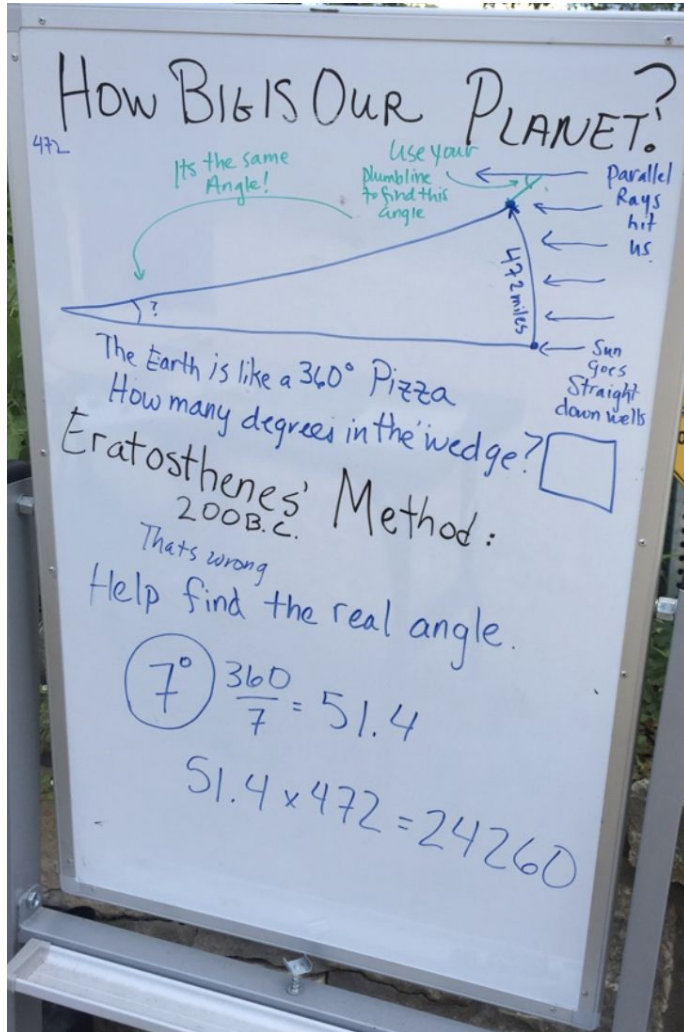 HOW BIG IS OUR PLANET?
472
Its the same
Angle!
Use your
plumbline
to find this
angle
Parallel
Rays
hit
us
?
472 miles
Sun
Goes
Straight
down wells
The Earth is like a 360° Pizza
How many degrees in the wedge?
Eratosthenes' Method:
200B.C.
Thats wrong
Help find the real angle.
7° 360/7 = 51.4
51.4 x 472 = 24260